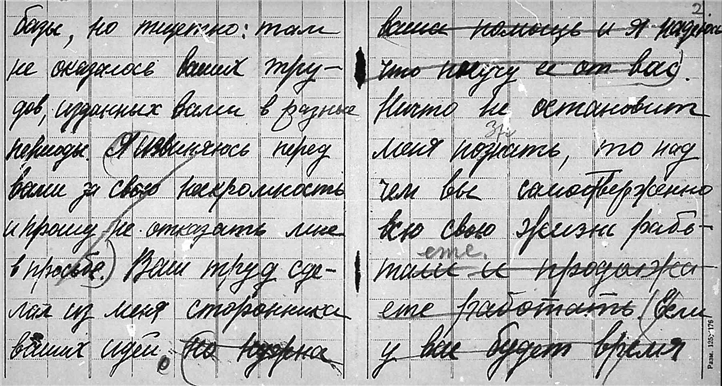 базы, но тщетно: там
не оказалось ваших тру-
дов, изданных вами в разные
периоды. (Я извиняюсь перед
вами за свою нескромность
и прошу не отказать мне
в просьбе.) Ваш труд сде-
лал из меня сторонника
ваших идей. но нужна
2.
ваша помощь и я надеюсь
что получу ее от вас).
Ничто не остановит
меня познать, то над
чем вы самоотверженно
всю свою жизнь рабо-
ете.
тали и продолжа
ете работать (Если
у вас будет время
Разм. 135×176